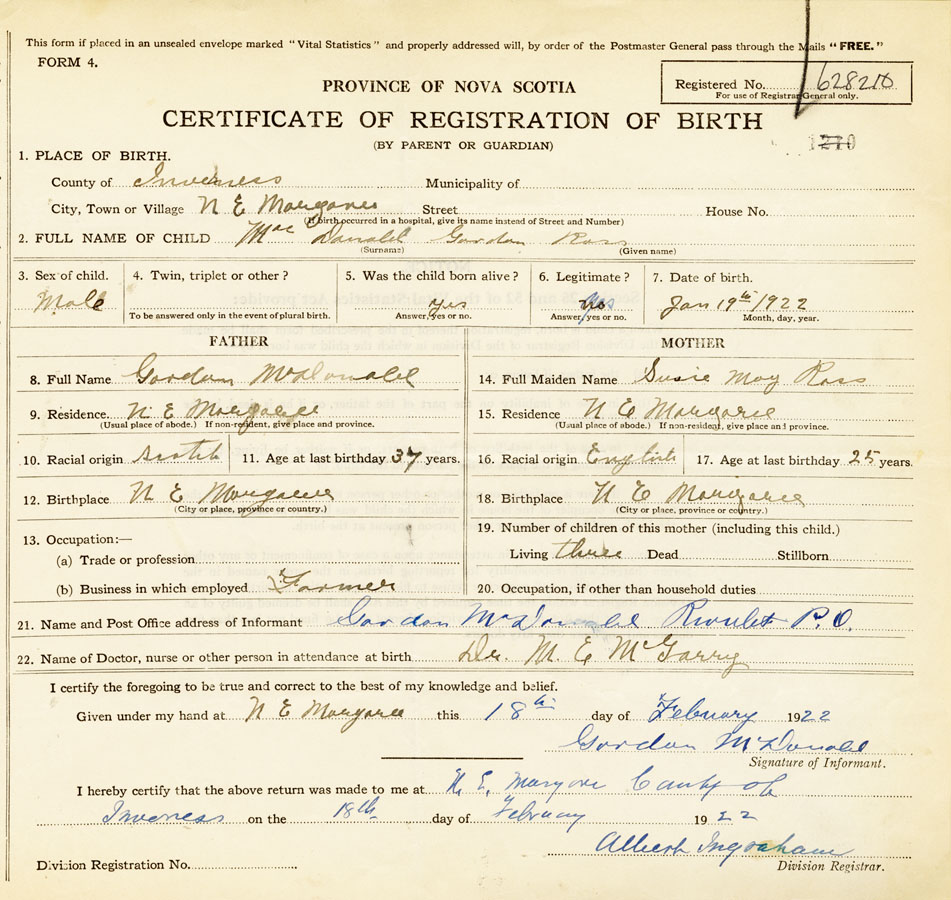 This form if placed in an unsealed envelope marked "Vital Statistics" and properly addressed will, by order of the Postmaster General pass through the Mails "FREE."
FORM 4.
PROVINCE OF NOVA SCOTIA
Registered No. 628210
For use of Registrar General only.
CERTIFICATE OF REGISTRATION OF BIRTH
(BY PARENT OR GUARDIAN)
1. PLACE OF BIRTH.
County of Inverness Municipality of
City, Town or Village N E Margaree Street House No.
(If birth occurred in a hospital, give its name instead of Street and Number)
2. FULL NAME OF CHILD Mac Donald Gordon Ross
(Surname) (Given name)
3. Sex of child. 4. Twin, triplet or other? 5. Was the child born alive? 6. Legitimate? 7. Date of birth.
Male yes yes Jan 19th 1922
To be answered only in the event of plural birth. Answer, yes or no. Answer, yes or no. Month, day, year.
FATHER MOTHER
8. Full Name Gordon McDonald 14. Full Maiden Name Susie May Ross
9. Residence. N E Margaree 15. Residence N E Margaree
(Usual place of abode.) If non-resident, give place and province. (Usual place of abode.) If non-resident, give place and province.
10. Racial origin Scotch 11. Age at last birthday 37 years. 16. Racial origin English 17. Age at last birthday 25 years.
12. Birthplace N E Margaree 18. Birthplace N E Margaree
(City or place, province or country.) (City or place, province or country.)
13. Occupation:— 19. Number of children of this mother (including this child.)
(a) Trade or profession Living three Dead Stillborn
(b) Business in which employed Farmer 20. Occupation, if other than household duties
21. Name and Post Office address of Informant Gordon McDonald P.O.
22. Name of Doctor, nurse or other person in attendance at birth Dr. M E McGarry
I certify the foregoing to be true and correct to the best of my knowledge and belief.
Given under my hand at N E Margaree this 18th day of February 1922
Gordon McDonald
Signature of Informant.
I hereby certify that the above return was made to me at N. E. Margaree County of
Inverness on the 18th day of February 1922
Albert Ingraham
Division Registration No. Division Registrar.